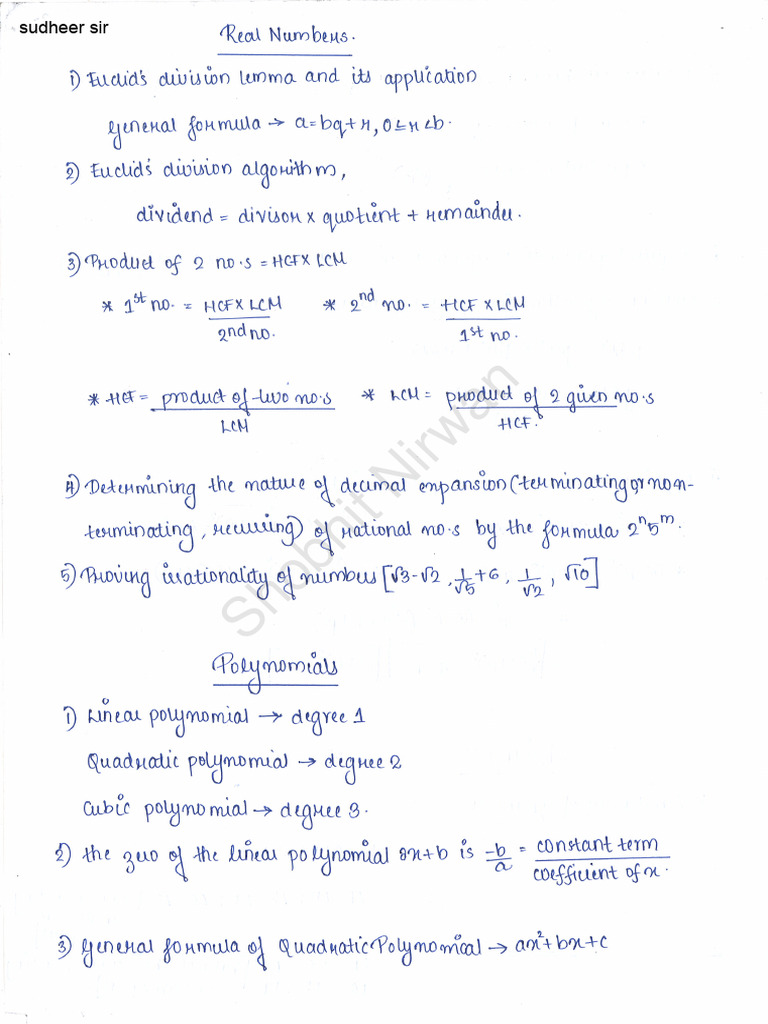 sudheer sir
Real Numbers.
1) Euclid's division lemma and its application
general formula → a=bq+r, 0≤r<b.
2) Euclid's division algorithm,
dividend = divisor x quotient + remainder.
3) Product of 2 no.s = HCF x LCM
* 1st no. = HCF X LCM / 2nd no. * 2nd no. = HCF X LCM / 1st no.
* HCF = product of two no.s / LCM * LCM = product of 2 given no.s / HCF.
4) Determining the nature of decimal expansion (terminating or non-
terminating, recurring) of rational no.s by the formula 2ⁿ5ᵐ.
5) Proving irrationality of numbers [√3-√2, 1/√5 +6, 1/√2, √10]
Shobhit Nirwan
Polynomials
1) Linear polynomial → degree 1
Quadratic polynomial → degree 2
Cubic polynomial → degree 3.
2) the zero of the linear polynomial ax+b is -b/a = constant term / coefficient of x.
3) general formula of Quadratic Polynomical → ax²+bx+c